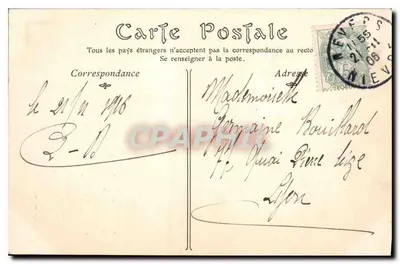 Carte Postale
Tous les pays étrangers n'acceptent pas la correspondance au recto
Se renseigner à la poste.
Correspondance
Adresse
le 21/11 1906
B-B
Mademoiselle
Germaine Bouillard
Quai Pierre Scize
Lyon
NEVERS
NIEVRE